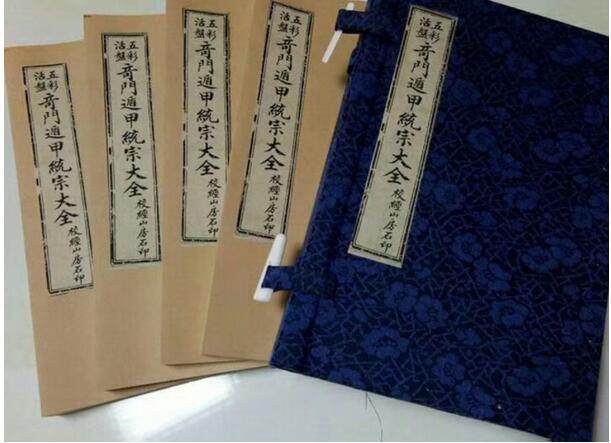 五彩
活盤
竒門遁甲統宗大全
校經山房石印
五彩
活盤
竒門遁甲統宗大全
校經山房石印
五彩
活盤
竒門遁甲統宗大全
校經山房石印
五彩
活盤
竒門遁甲統宗大全
校經山房石印
五彩
活盤
竒門遁甲統宗大全
校經山房石印